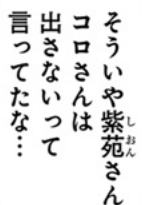 そういや紫苑さん
コロさんは
出さないって
言ってたな…